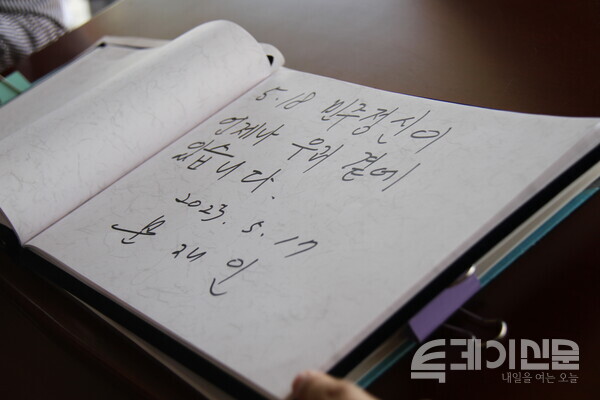 5.18 민주정신이
언제나 우리 곁에
있습니다.
2023. 5. 17
문 재 인
투데이신문
내일을 여는 오늘